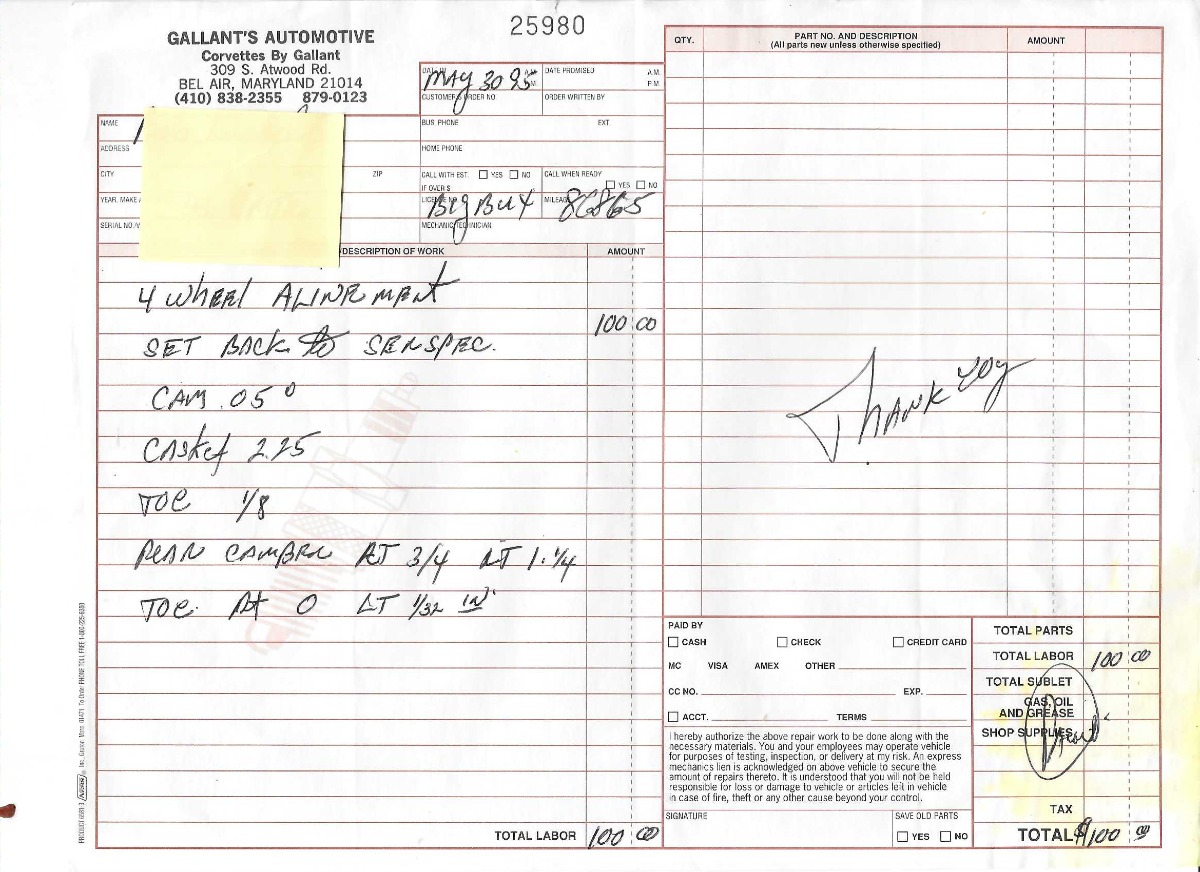 25980
GALLANT'S AUTOMOTIVE
Corvettes By Gallant
309 S. Atwood Rd.
BEL AIR, MARYLAND 21014
(410) 838-2355 879-0123
MAY 30 95 A.M. P.M.
DATE PROMISED A.M. P.M.
CUSTOMER'S ORDER NO. ORDER WRITTEN BY
NAME
BUS PHONE EXT.
ADDRESS
HOME PHONE
CITY ZIP
CALL WITH EST. YES NO CALL WHEN READY YES NO
IF OVER $
YEAR, MAKE
LICENSE NO. BigBux MILEAGE 86865
SERIAL NO./
MECHANIC/TECHNICIAN
DESCRIPTION OF WORK AMOUNT
4 WHEEL ALINEMENT
100 00
SET BACK to SENSPEC.
CAM .05°
CASKET 2.25
TOE 1/8
REAR CAMBER RT 3/4 LT 1-1/4
TOE. Rt 0 LT 1/32 IN
TOTAL LABOR 100 00
QTY. PART NO. AND DESCRIPTION AMOUNT
(All parts new unless otherwise specified)
THANK YOU
PAID BY
CASH CHECK CREDIT CARD
MC VISA AMEX OTHER
CC NO. EXP.
ACCT. TERMS
I hereby authorize the above repair work to be done along with the
necessary materials. You and your employees may operate vehicle
for purposes of testing, inspection, or delivery at my risk. An express
mechanics lien is acknowledged on above vehicle to secure the
amount of repairs thereto. It is understood that you will not be held
responsible for loss or damage to vehicle or articles left in vehicle
in case of fire, theft or any other cause beyond your control.
SIGNATURE
SAVE OLD PARTS
YES NO
TOTAL PARTS
TOTAL LABOR 100 00
TOTAL SUBLET
GAS, OIL
AND GREASE
SHOP SUPPLIES
TAX
TOTAL $100 00